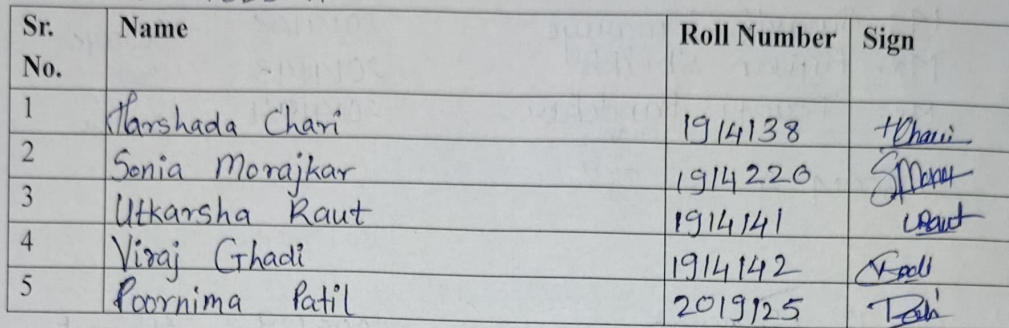 Sr. No. Name Roll Number Sign
1 Harshada Chari 1914138 HChari
2 Sonia Morajkar 1914220
3 Utkarsha Raut 1914141 URaut
4 Viraj Ghadi 1914142
5 Poornima Patil 2019125